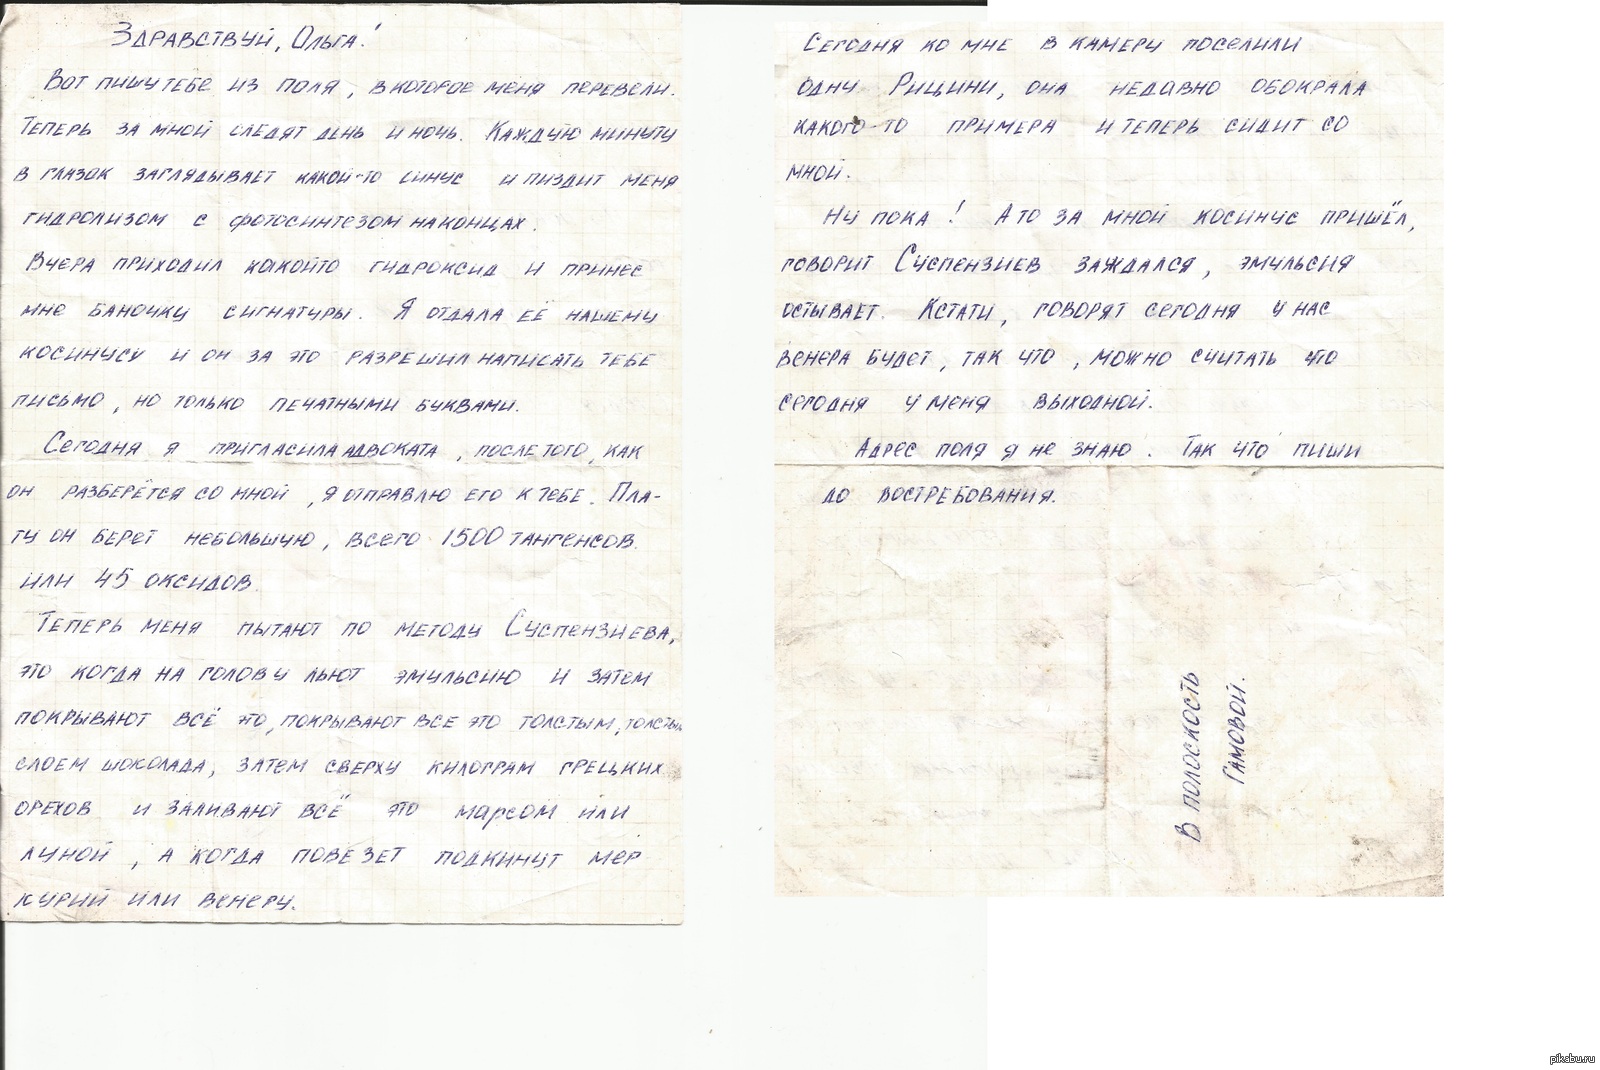 Здравствуй, Ольга!
Вот пишу тебе из поля, в которое меня перевели.
Теперь за мной следят день и ночь. Каждую минуту
в глазок заглядывает какой-то синус и пиздит меня
гидролизом с фотосинтезом на концах.
Вчера приходил какойто гидроксид и принёс
мне баночку сигнатуры. Я отдала её нашему
косинусу и он за это разрешил написать тебе
письмо, но только печатными буквами.
Сегодня я пригласила адвоката, после того, как
он разберётся со мной, я отправлю его к тебе. Пла-
ту он берет небольшую, всего 1500 тангенсов.
или 45 оксидов.
Теперь меня пытают по методу Суспензиева,
это когда на голову льют эмульсию и затем
покрывают всё это, покрывают все это толстым, толстым
слоем шоколада, затем сверху килограм грецких
орехов и заливают всё это марсом или
луной, а когда повезет подкинут мер
курий или венеру.
Сегодня ко мне в камеру поселили
одну Рицини, она недавно обокрала
какого-то примера и теперь сидит со
мной.
Ну пока! А то за мной косинус пришёл,
говорит Суспензиев заждался, эмульсия
остывает. Кстати, говорят сегодня у нас
венера будет, так что, можно считать что
сегодня у меня выходной.
Адрес поля я не знаю. Так что пиши
до востребования.
В полоскость
Гамовой.
pikabu.ru